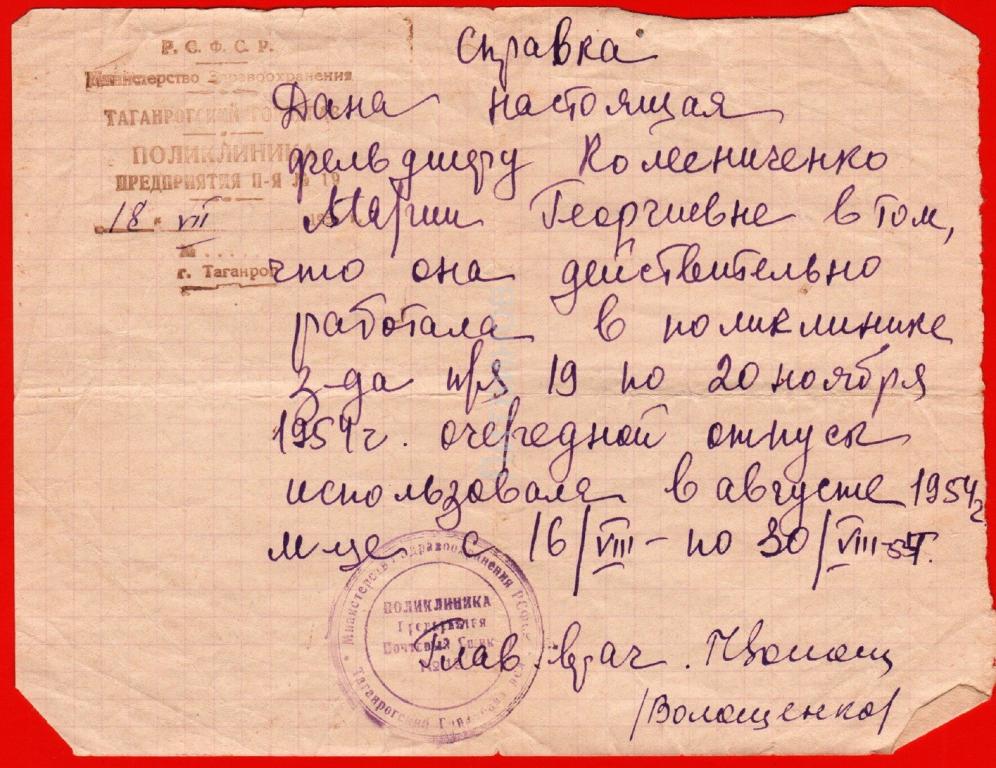 Р. С. Ф. С. Р.
Министерство Здравоохранения
ТАГАНРОГСКИЙ
ПОЛИКЛИНИКА
ПРЕДПРИЯТИЯ П-Я № 19
18 VII 195
№
г. Таганрог
Справка
Дана настоящая
фельдшеру Колесниченко
Марии Георгиевне в том,
что она действительно
работала в поликлинике
з-да п/я 19 по 20 ноября
1954 г. очередной отпуск
использовала в августе 1954 г
м-це с 16/VIII - по 30/VIII-
Глав. врач.
/Волощенко/
Министерство Здравоохранения РСФСР
Таганрогский
ПОЛИКЛИНИКА
Предприятия
Почтовый Ящик